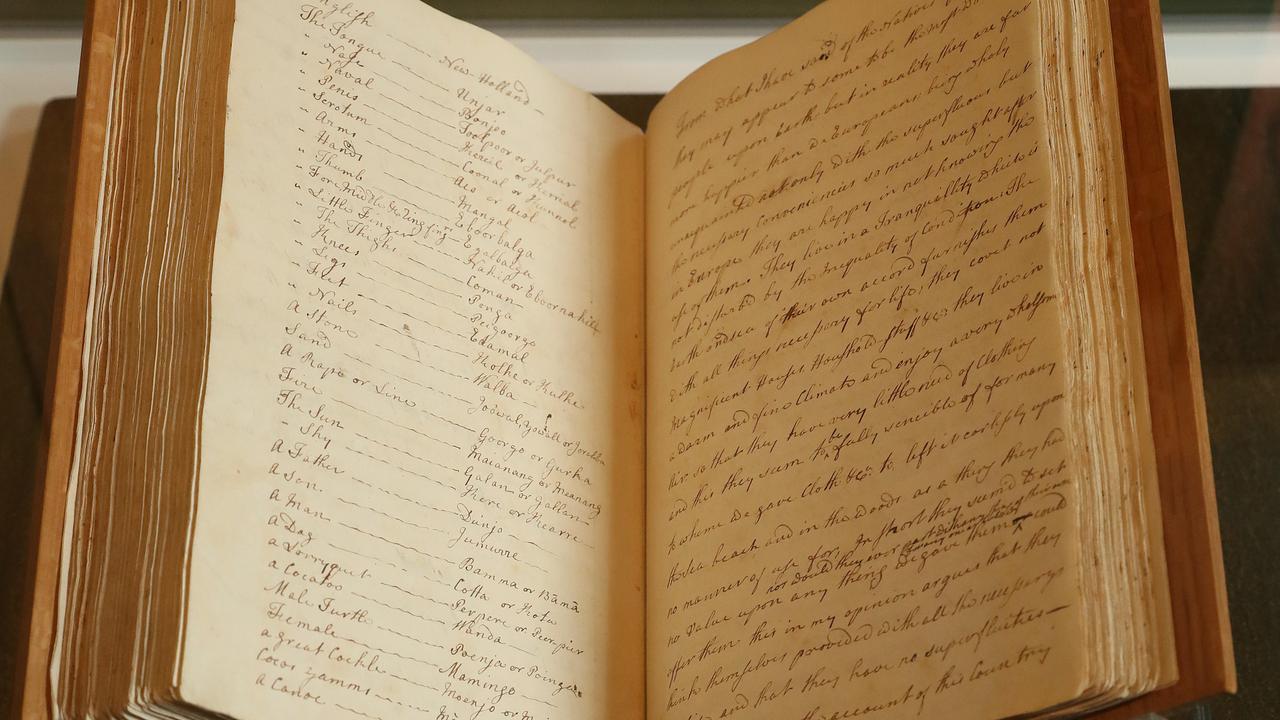 English New Holland
The Tongue Unjar
" Nose Bonjoo
" Naval Toolpoor or Julpur
" Penis Keveil or Kerrial
" Scrotum Coonal or Kunnol
" Arms Aw or Awl
" Hand Mangal
" Thumb Eboorbalga
" Fore Middle & Ring fingrs Egalbalga
" Little Finger Nakil or Eboornakill
" The Thighs Coman
" Knees Ponga
" Legs Peigoorgo
" Feet Edamal
" Nails Kolke or Kulke
A Stone Walba
Sand Joowal, Yowall or Joralba
A Rope or Line Goorgo or Gurka
Fire Maianang or Meanang
The Sun Galan or Gallan
" Sky Kere or Kearre
A Father Dunjo
A Son Jumurre
A Man Bamma or Bama
a Dog Cotta or Kota
a Lorryquet Perpere or Peerpier
a Cocatoo Wanda
Male Turtle Poenja or Poinga
Female Mamingo
a great Cockle Moenjo or
Cocos yamms
a Canoe
From what I have said of the Natives
they may appear to some to be the
people upon Earth but in reality they are far
more happier than we Europeans: being wholy
unacquainted not only with the superfluous but
the necessary conveniencies so much sought after
in Europe, they are happy in not knowing the
use of them. They live in a Tranquillity which is
not disturb'd by the Inequality of Condition: The
Earth and sea of their own accord furnishes them
with all things necessary for life; they covet not
Magnificent Houses Houshold-stuff &ca: they live in
a warm and fine Climate and enjoy a very wholsome
Air so that they have very little need of Clothing
and this they seem to be fully sencible of for many
to whome we gave Cloth &ca: to, left it carlessly upon
the Sea beach and in the woods as a thing they had
no manner of use for. In short they seem'd to set
no Value upon any thing we gave them
nor would they ever part with any thing of their own
offer them this in my opinion argues that they
think themselves provided with all the necessarys
of Life and that they have no superfluities—
account of this Country